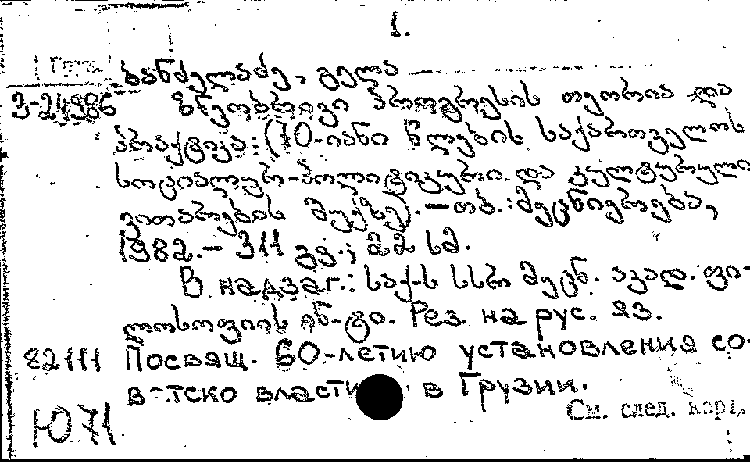 1.
Груз.
ბანძელაძე, გელა
3-24986 ზნეობრივი პროგრესის თეორია და
პრაქტიკა: (70-იანი წლების საქართველოს
სოციალურ-პოლიტიკური და კულტურული
ვითარების შუქზე). — თბ.: მეცნიერება,
1982. — 311 გვ.; 22 სმ.
В надзаг.: საქ-ს სსრ მეცნ. აკად. ფი-
ლოსოფიის ინ-ტი. Рез. на рус. яз.
82111 Посвящ. 60-летию установления со-
в-тско власти в Грузии.
См. след. карт.
Ю71